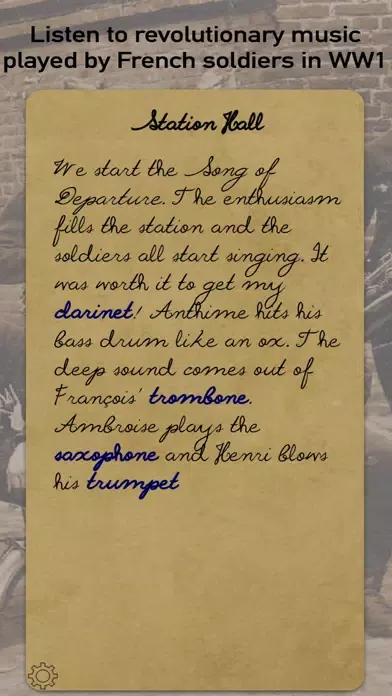 Listen to revolutionary music
played by French soldiers in WW1
Station Hall
We start the Song of
Departure. The enthusiasm
fills the station and the
soldiers all start singing. It
was worth it to get my
clarinet! Anthime hits his
bass drum like an ox. The
deep sound comes out of
François' trombone.
Ambroise plays the
saxophone and Henri blows
his trumpet